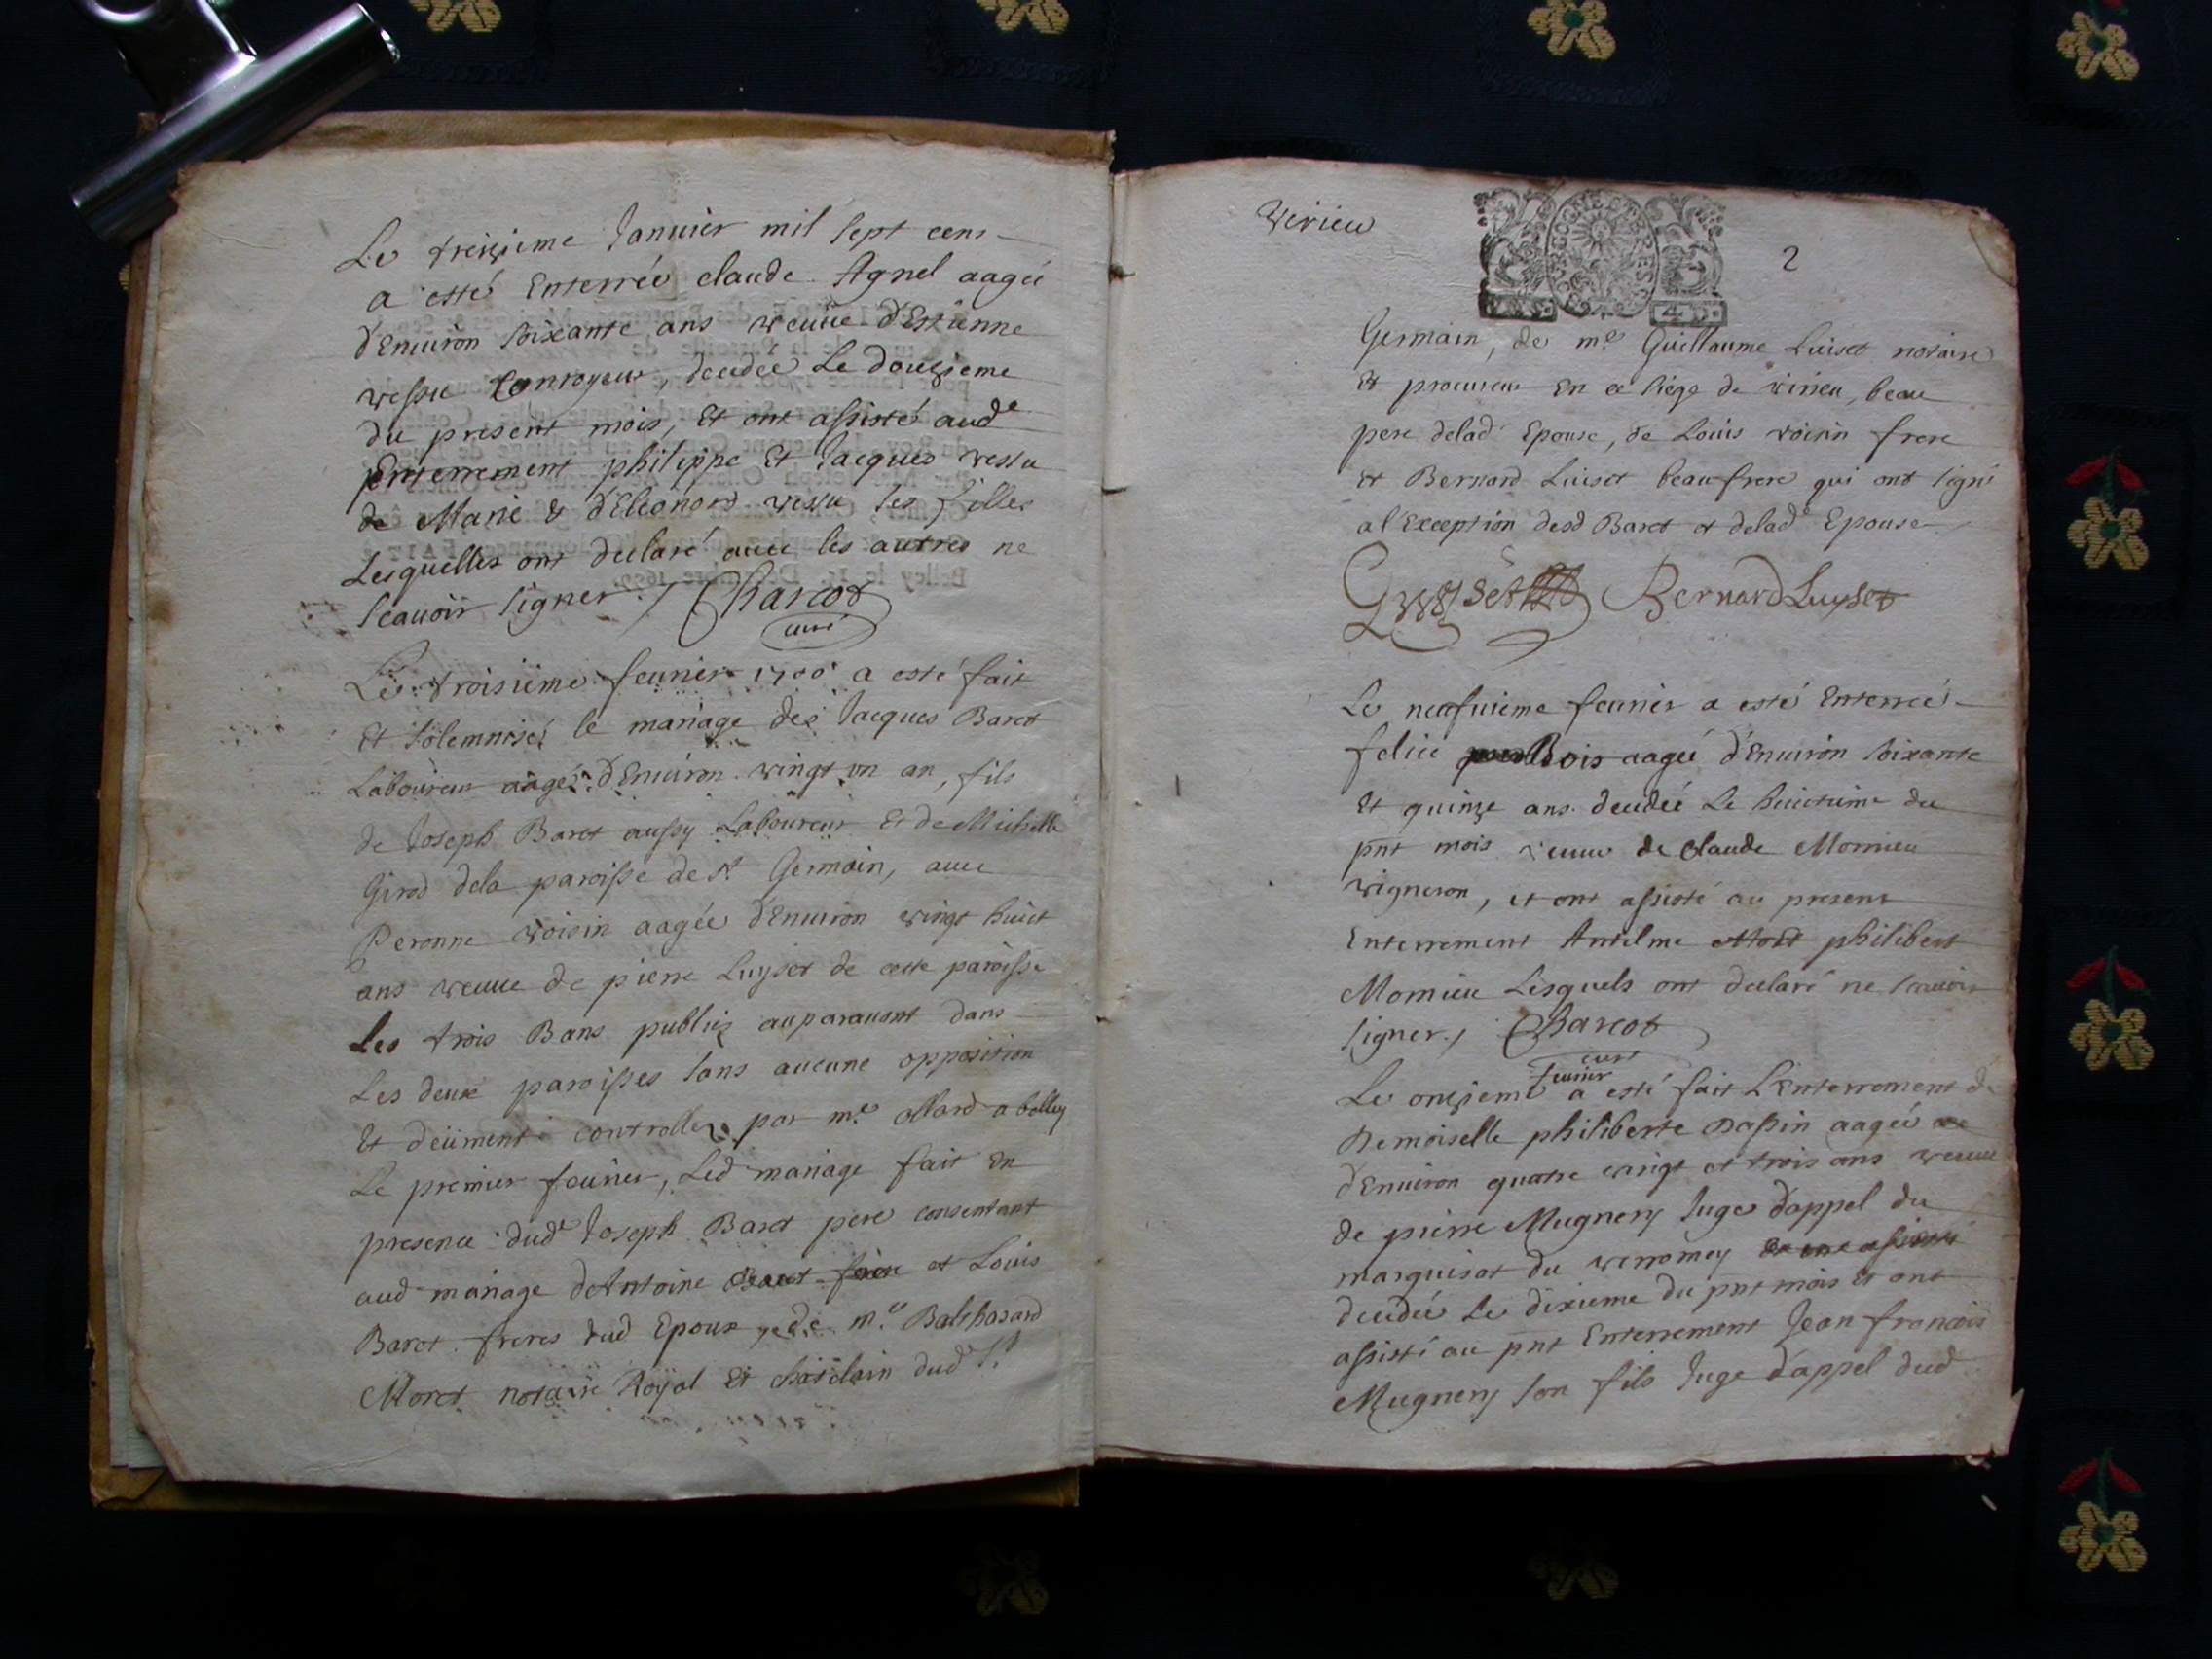 Le treizieme Januier mil sept cens
a esté Enterrée claude Agnel aagée
d'Enuiron soixante ans veuue d'Estienne
vessu Conroyeur, decedée Le douzieme
du present mois, Et ont assisté aud^e
Enterrement philippe Et Jacques vessu
de Marie & d'Eleonord vessu ses filles
Lesquelles ont declaré auec les autres ne
scauoir signer./ Charcot
curé
Le troisieme feurier 1700 a esté fait
Et solemnisé le mariage de Jacques Baret
Laboureur aagé d'Enuiron vingt vn an, fils
de Joseph Baret aussy Laboureur Et de Michelle
Girod dela paroisse de S^t Germain, auec
Peronne voisin aagée d'Enuiron vingt huict
ans veuue de pierre Luyset de cette paroisse
Les trois Bans publiez auparauant dans
Les deux paroisses sans aucune opposition
Et deüment controllez par m^e allard a belley
Le premier feurier, Led mariage fait En
presence dud^t Joseph Baret pere consentant
aud mariage d'Antoine et Louis
Baret freres dud Epoux, de m^e Balthasard
Moret notaire Royal Et chatelain dud^t S^t
Virieu
BOURGOGNE ET BRESSE
4 D.
2
Germain, de m^e Guillaume Luiset notaire
Et procureur En ce siege de virieu, beau
pere delad Epouse, de Louis voisin frere
et Bernard Luiset beaufrere qui ont signé
a l'Exception desd Baret et delad^e Epouse
Bernard Luyset
Le neufuieme feurier a esté Enterrée
felice Bois aagée d'Enuiron soixante
Et quinze ans decedée Le huictieme du
pnt mois veuue de claude Momieu
vigneron, et ont assisté au present
Enterrement Antelme philibert
Momieu Lesquels ont declaré ne scauoir
signer./ Charcot
curé
Le onzieme feurier a esté fait L'Enterrement de
Demoiselle philiberte Dapin aagée
d'Enuiron quatre vingt et trois ans veuue
de pierre Mugnery Juge d'appel du
marquisat du verromey
decedée Le dixieme du pnt mois Et ont
assisté au pnt Enterrement Jean francois
Mugnery son fils Juge d'appel dud